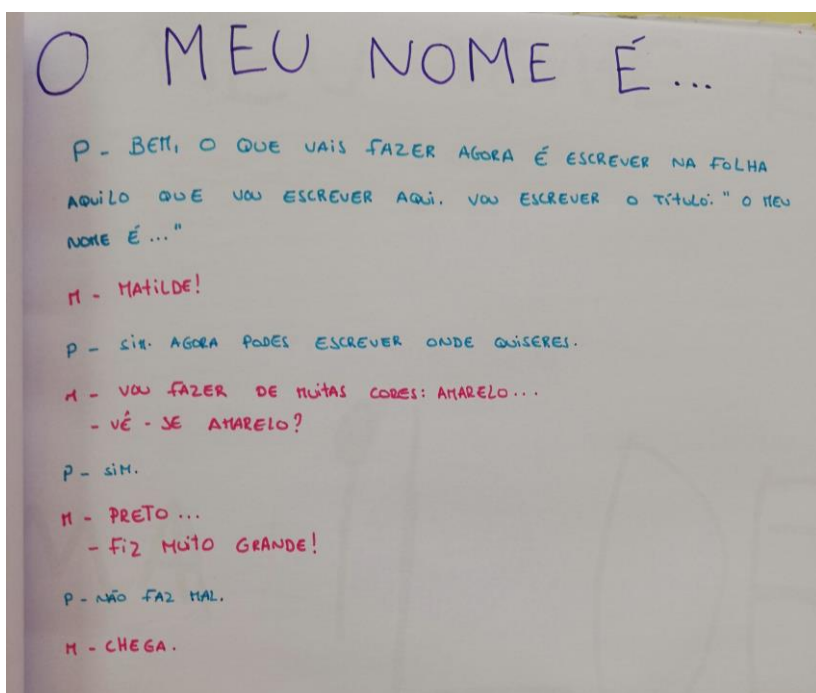 O MEU NOME É...
P - BEM, O QUE VAIS FAZER AGORA É ESCREVER NA FOLHA
AQUILO QUE VOU ESCREVER AQUI. VOU ESCREVER O TÍTULO: "O MEU
NOME É ..."
M - MATILDE!
P - SIM. AGORA PODES ESCREVER ONDE QUISERES.
M - VOU FAZER DE MUITAS CORES: AMARELO...
- VÊ - SE AMARELO?
P - SIM.
M - PRETO ...
- FIZ MUITO GRANDE!
P - NÃO FAZ MAL.
M - CHEGA.